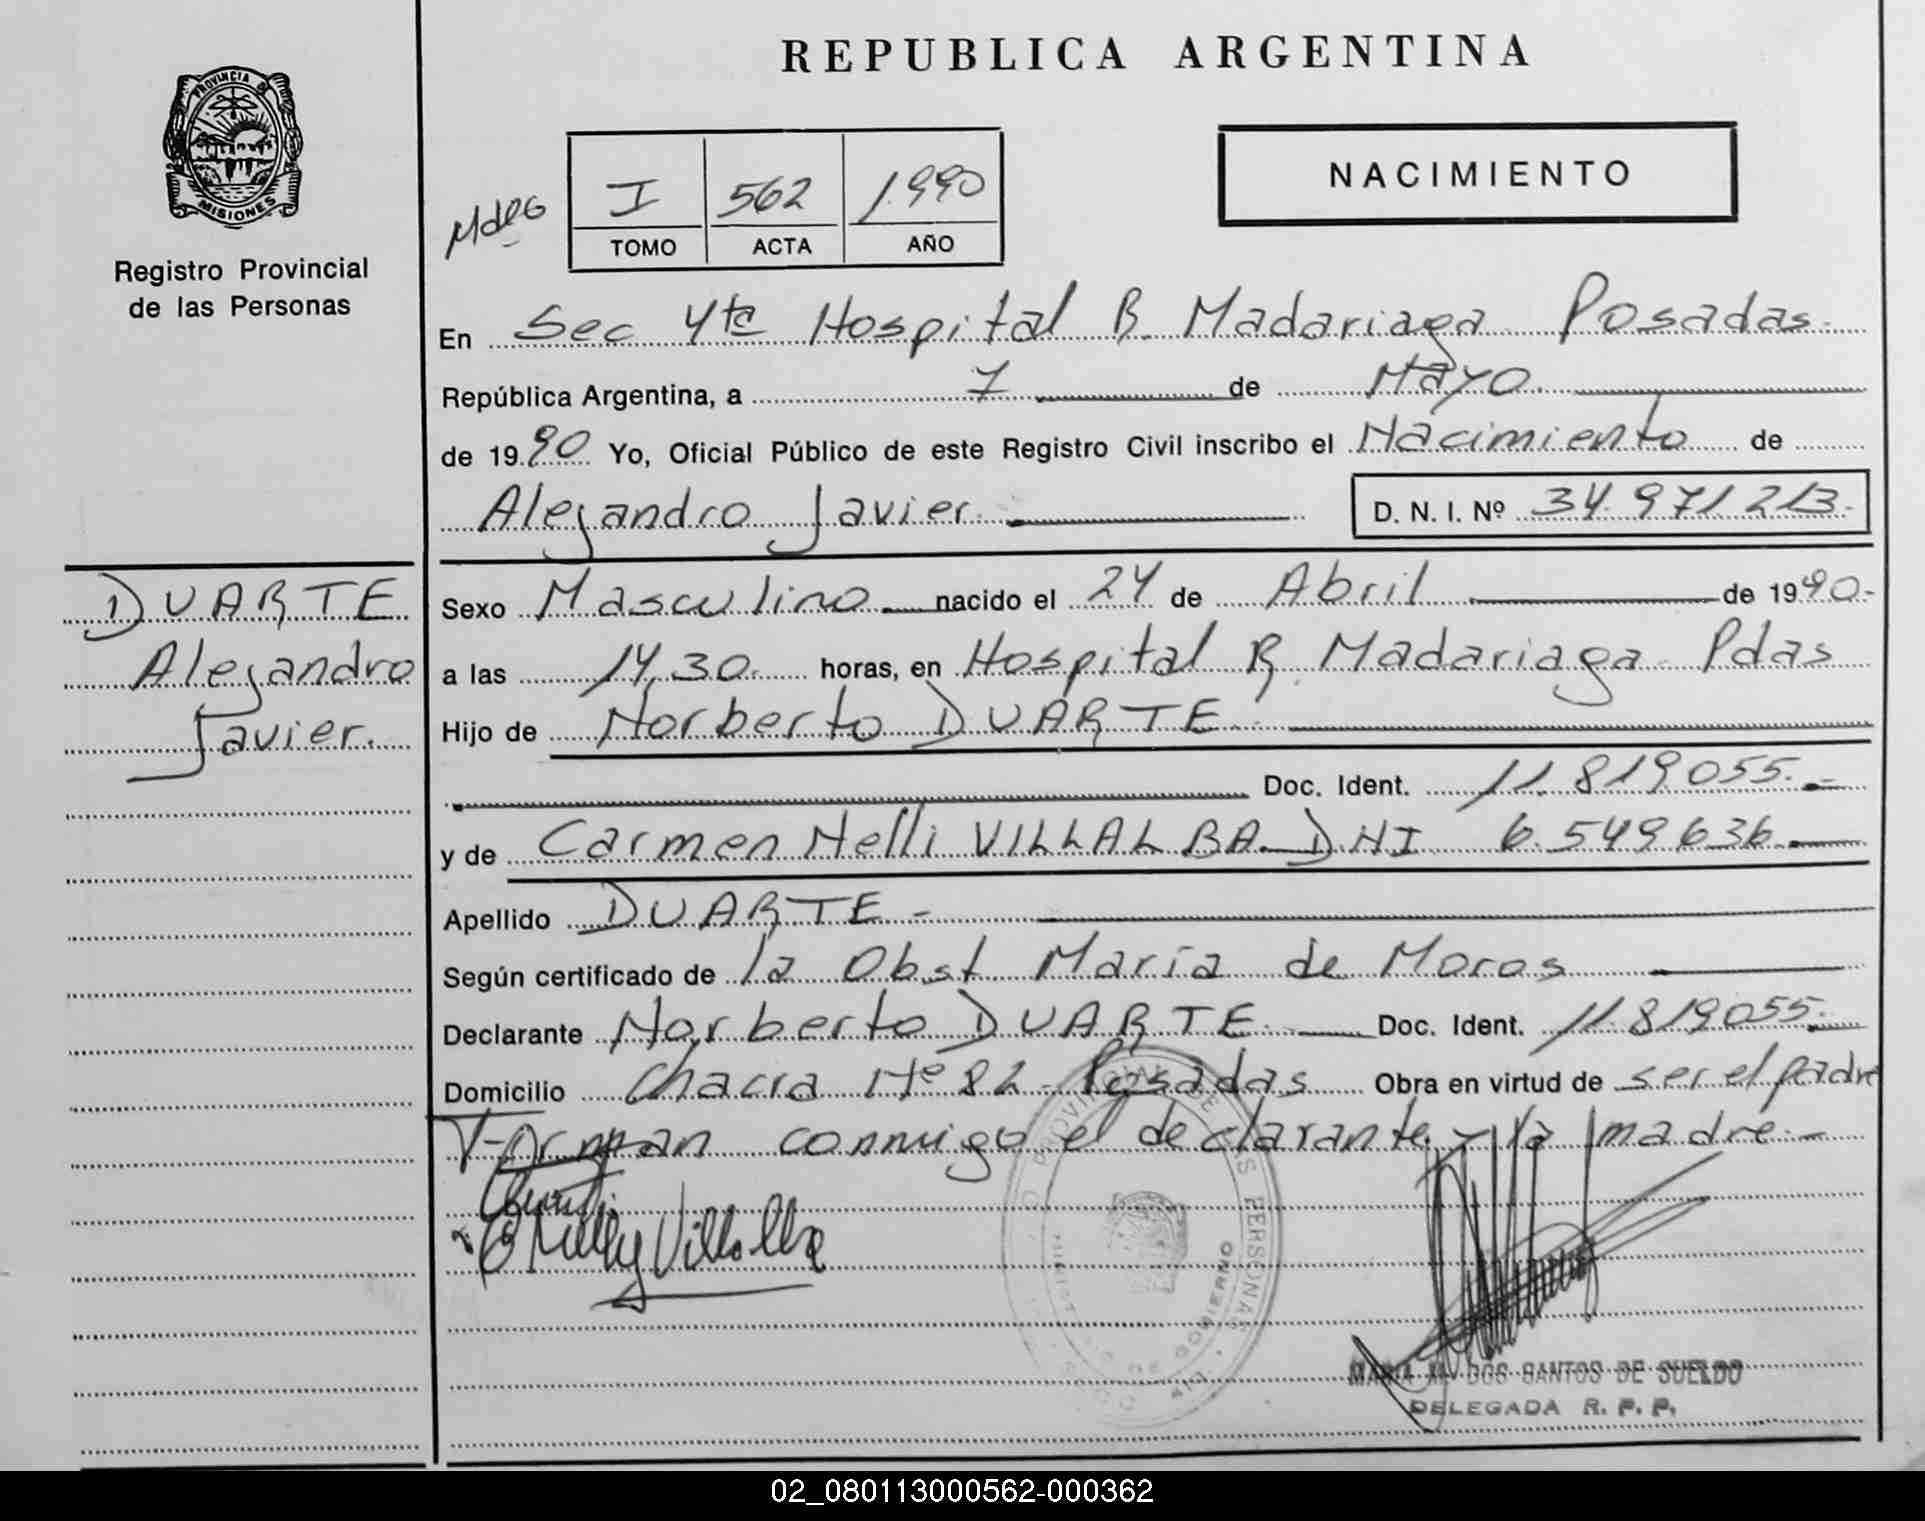 REPUBLICA ARGENTINA
PROVINCIA DE
MISIONES
Registro Provincial
de las Personas
NACIMIENTO
I 562 1.990
TOMO ACTA AÑO
En Sec 4ta Hospital R. Madariaga Posadas.
República Argentina, a 7 de Mayo.
de 19 90 Yo, Oficial Público de este Registro Civil inscribo el Nacimiento de
Alejandro Javier. D. N. I. Nº 34.971213.
DUARTE
Alejandro
Javier.
Sexo Masculino nacido el 24 de Abril de 19 90.-
a las 14,30. horas, en Hospital R. Madariaga Pdas
Hijo de Norberto DUARTE.
Doc. Ident. 11.819055.-
y de Carmen Nelli VILLALBA DNI 6.549636.
Apellido DUARTE.-
Según certificado de la Obst Maria de Moros
Declarante Norberto DUARTE. Doc. Ident. 11.819055.
Domicilio Chacra Nº 82 Posadas Obra en virtud de ser el padre
Firman conmigo el declarante y la madre.-
Nelly Villalba
PROVINCIAL DE LAS PERSONAS
MINISTERIO DE GOBIERNO
MARIA M. DOS SANTOS DE SUELDO
DELEGADA R. P. P.
02_080113000562-000362